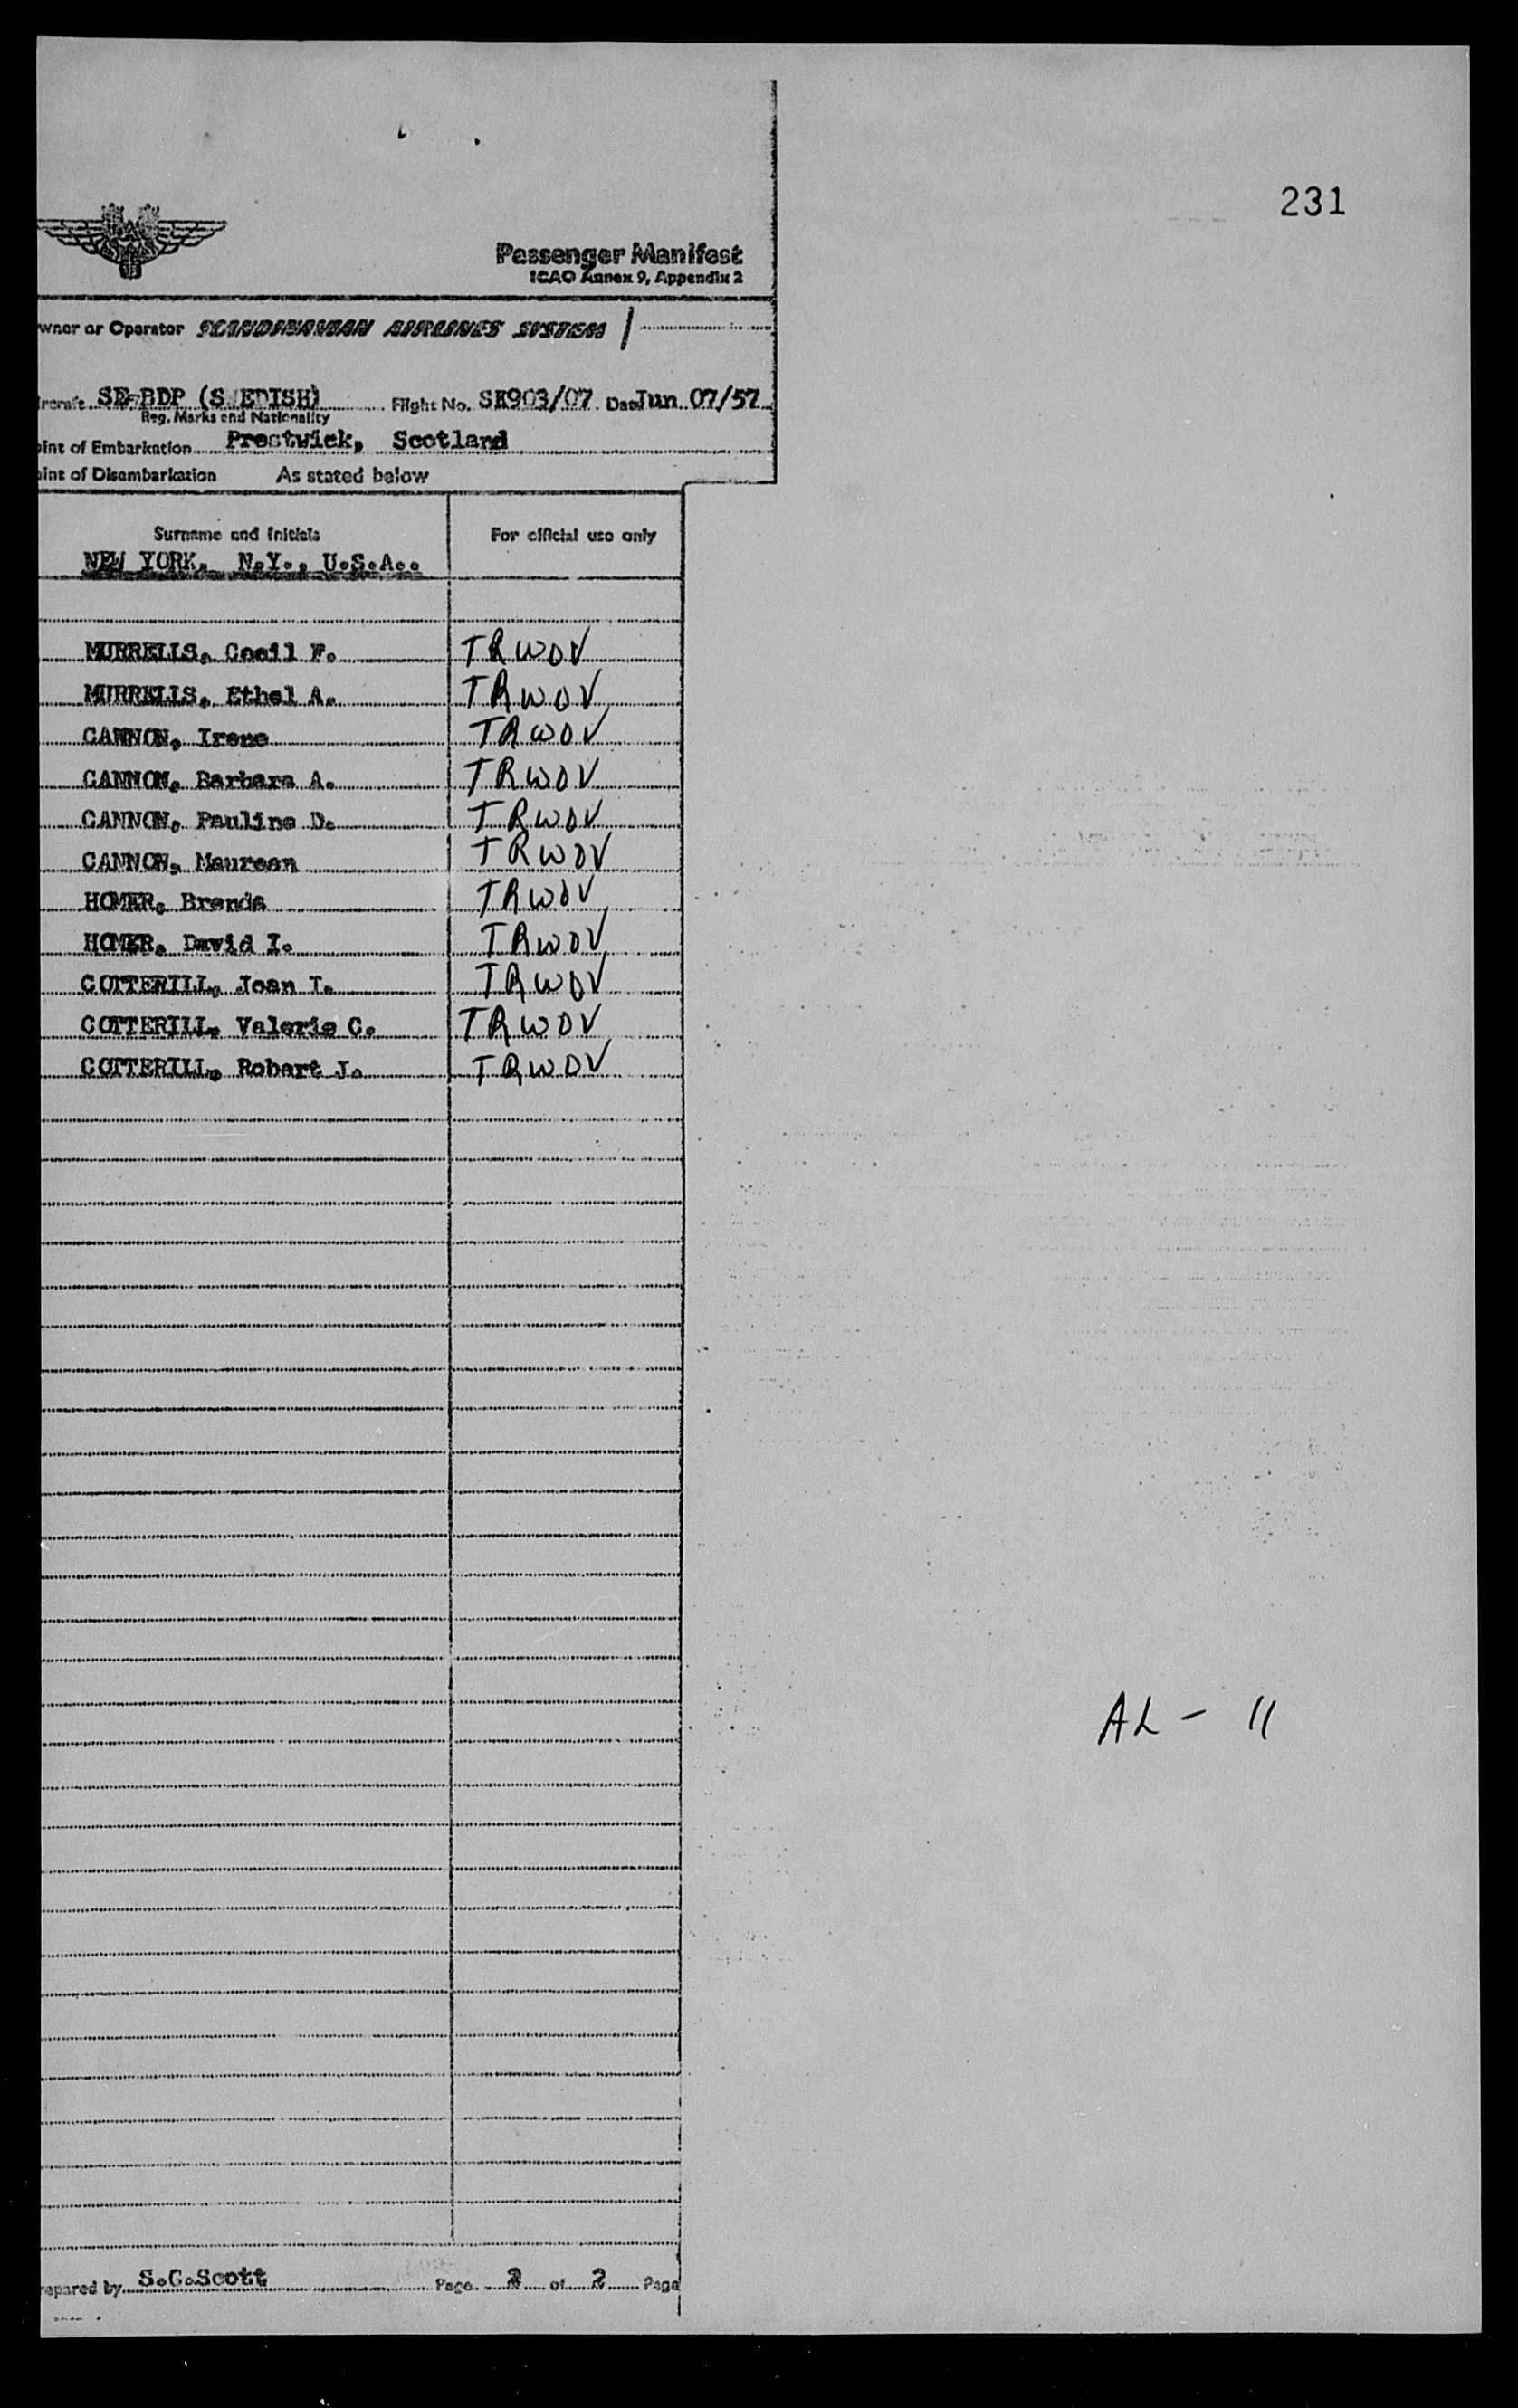 231
Passenger Manifest
ICAO Annex 9, Appendix 2
wner or Operator SCANDINAVIAN AIRLINES SYSTEM
ircraft SE-BDP (SWEDISH) Flight No. SK903/07 Date Jun 07/57
Reg. Marks and Nationality
oint of Embarkation Prestwick, Scotland
oint of Disembarkation As stated below
Surname and Initials For official use only
NEW YORK, N.Y., U.S.A..
MURRELLS, Cecil F. TRWOV
MURRELLS, Ethel A. TRWOV
CANNON, Irene TRWOV
CANNON, Barbara A. TRWOV
CANNON, Pauline D. TRWOV
CANNON, Maureen TRWOV
HOMER, Brenda TRWOV
HOMER, David I. TRWOV
COTTERILL, Joan I. TRWOV
COTTERILL, Valerie C. TRWOV
COTTERILL, Robert J. TRWOV
AL - 11
repared by S.C.Scott Page 2 of 2 Page